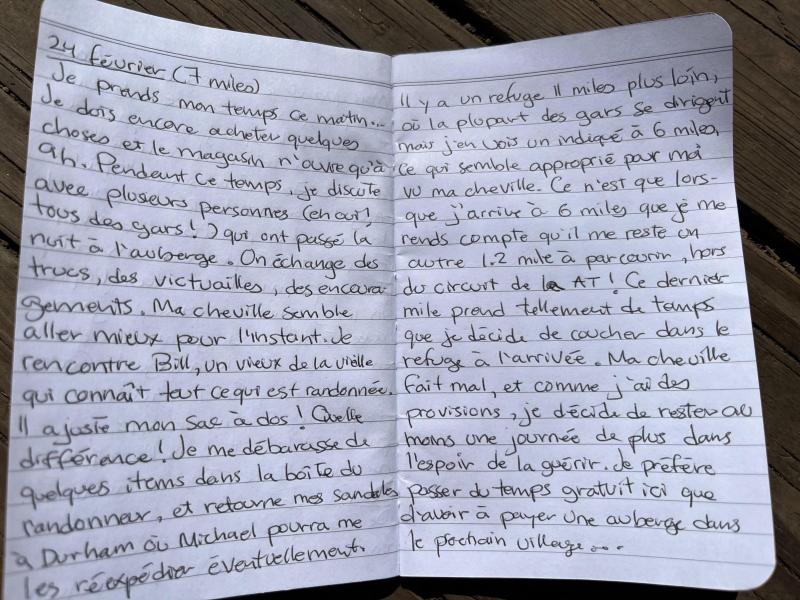 24 février (7 miles)
Je prends mon temps ce matin...
Je dois encore acheter quelques
choses et le magasin n'ouvre qu'à
9h. Pendant ce temps, je discute
avec plusieurs personnes (eh oui,
tous des gars!) qui ont passé la
nuit à l'auberge. On échange des
trucs, des victuailles, des encoura-
gements. Ma cheville semble
aller mieux pour l'instant. Je
rencontre Bill, un vieux de la vieille
qui connaît tout ce qui est randonnée.
Il ajuste mon sac à dos! Quelle
différence! Je me débarasse de
quelques items dans la boîte du
randonneur, et retourne mes sandales
à Durham où Michael pourra me
les réexpédier éventuellement.
Il y a un refuge 11 miles plus loin,
où la plupart des gars se dirigent
mais j'en vois un indiqué à 6 miles,
ce qui semble approprié pour moi
vu ma cheville. Ce n'est que lors-
que j'arrive à 6 miles que je me
rends compte qu'il me reste un
autre 1.2 mile à parcourir, hors
du circuit de la AT! Ce dernier
mile prend tellement de temps
que je décide de coucher dans le
refuge à l'arrivée. Ma cheville
fait mal, et comme j'ai des
provisions, je décide de rester au
moins une journée de plus dans
l'espoir de la guérir. Je préfère
passer du temps gratuit ici que
d'avoir à payer une auberge dans
le prochain village...